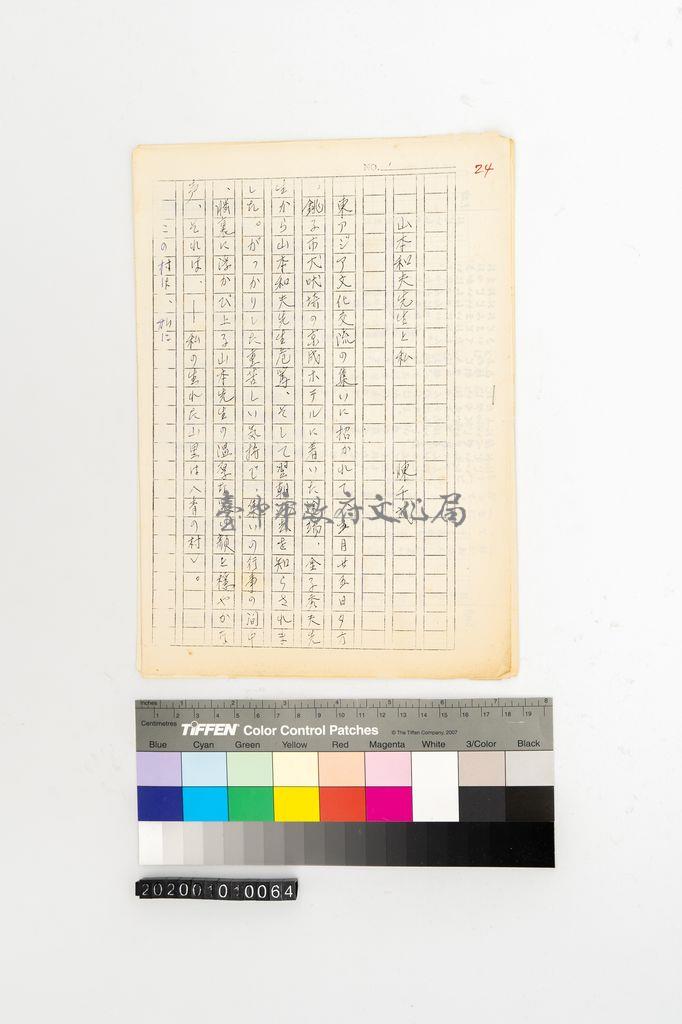 24
NO. 1
山本和夫先生と私
陳千武
東アジア文化交流の集いに招かれて 月廿五日夕方
、銚子市犬吠埼の京成ホテルに着いた 端、金子秀夫先
生から山本和夫先生危篤、そして翌朝 を知らされま
した。がっかりした重苦しい気持で、集いの行事の間中
、脳裏に浮かび上る山本先生の温厚な 顔と穏やかな
声、それは、――私の生れた山里は〈青の村〉。
この村は、
臺中市政府文化局
Inches 1 2 3 4 5 6 7 8
Centimetres 1 2 3 4 5 6 7 8 9 10 11 12 13 14 15 16 17 18 19
TIFFEN Color Control Patches © The Tiffen Company, 2007
Blue Cyan Green Yellow Red Magenta White 3/Color Black
202001010064